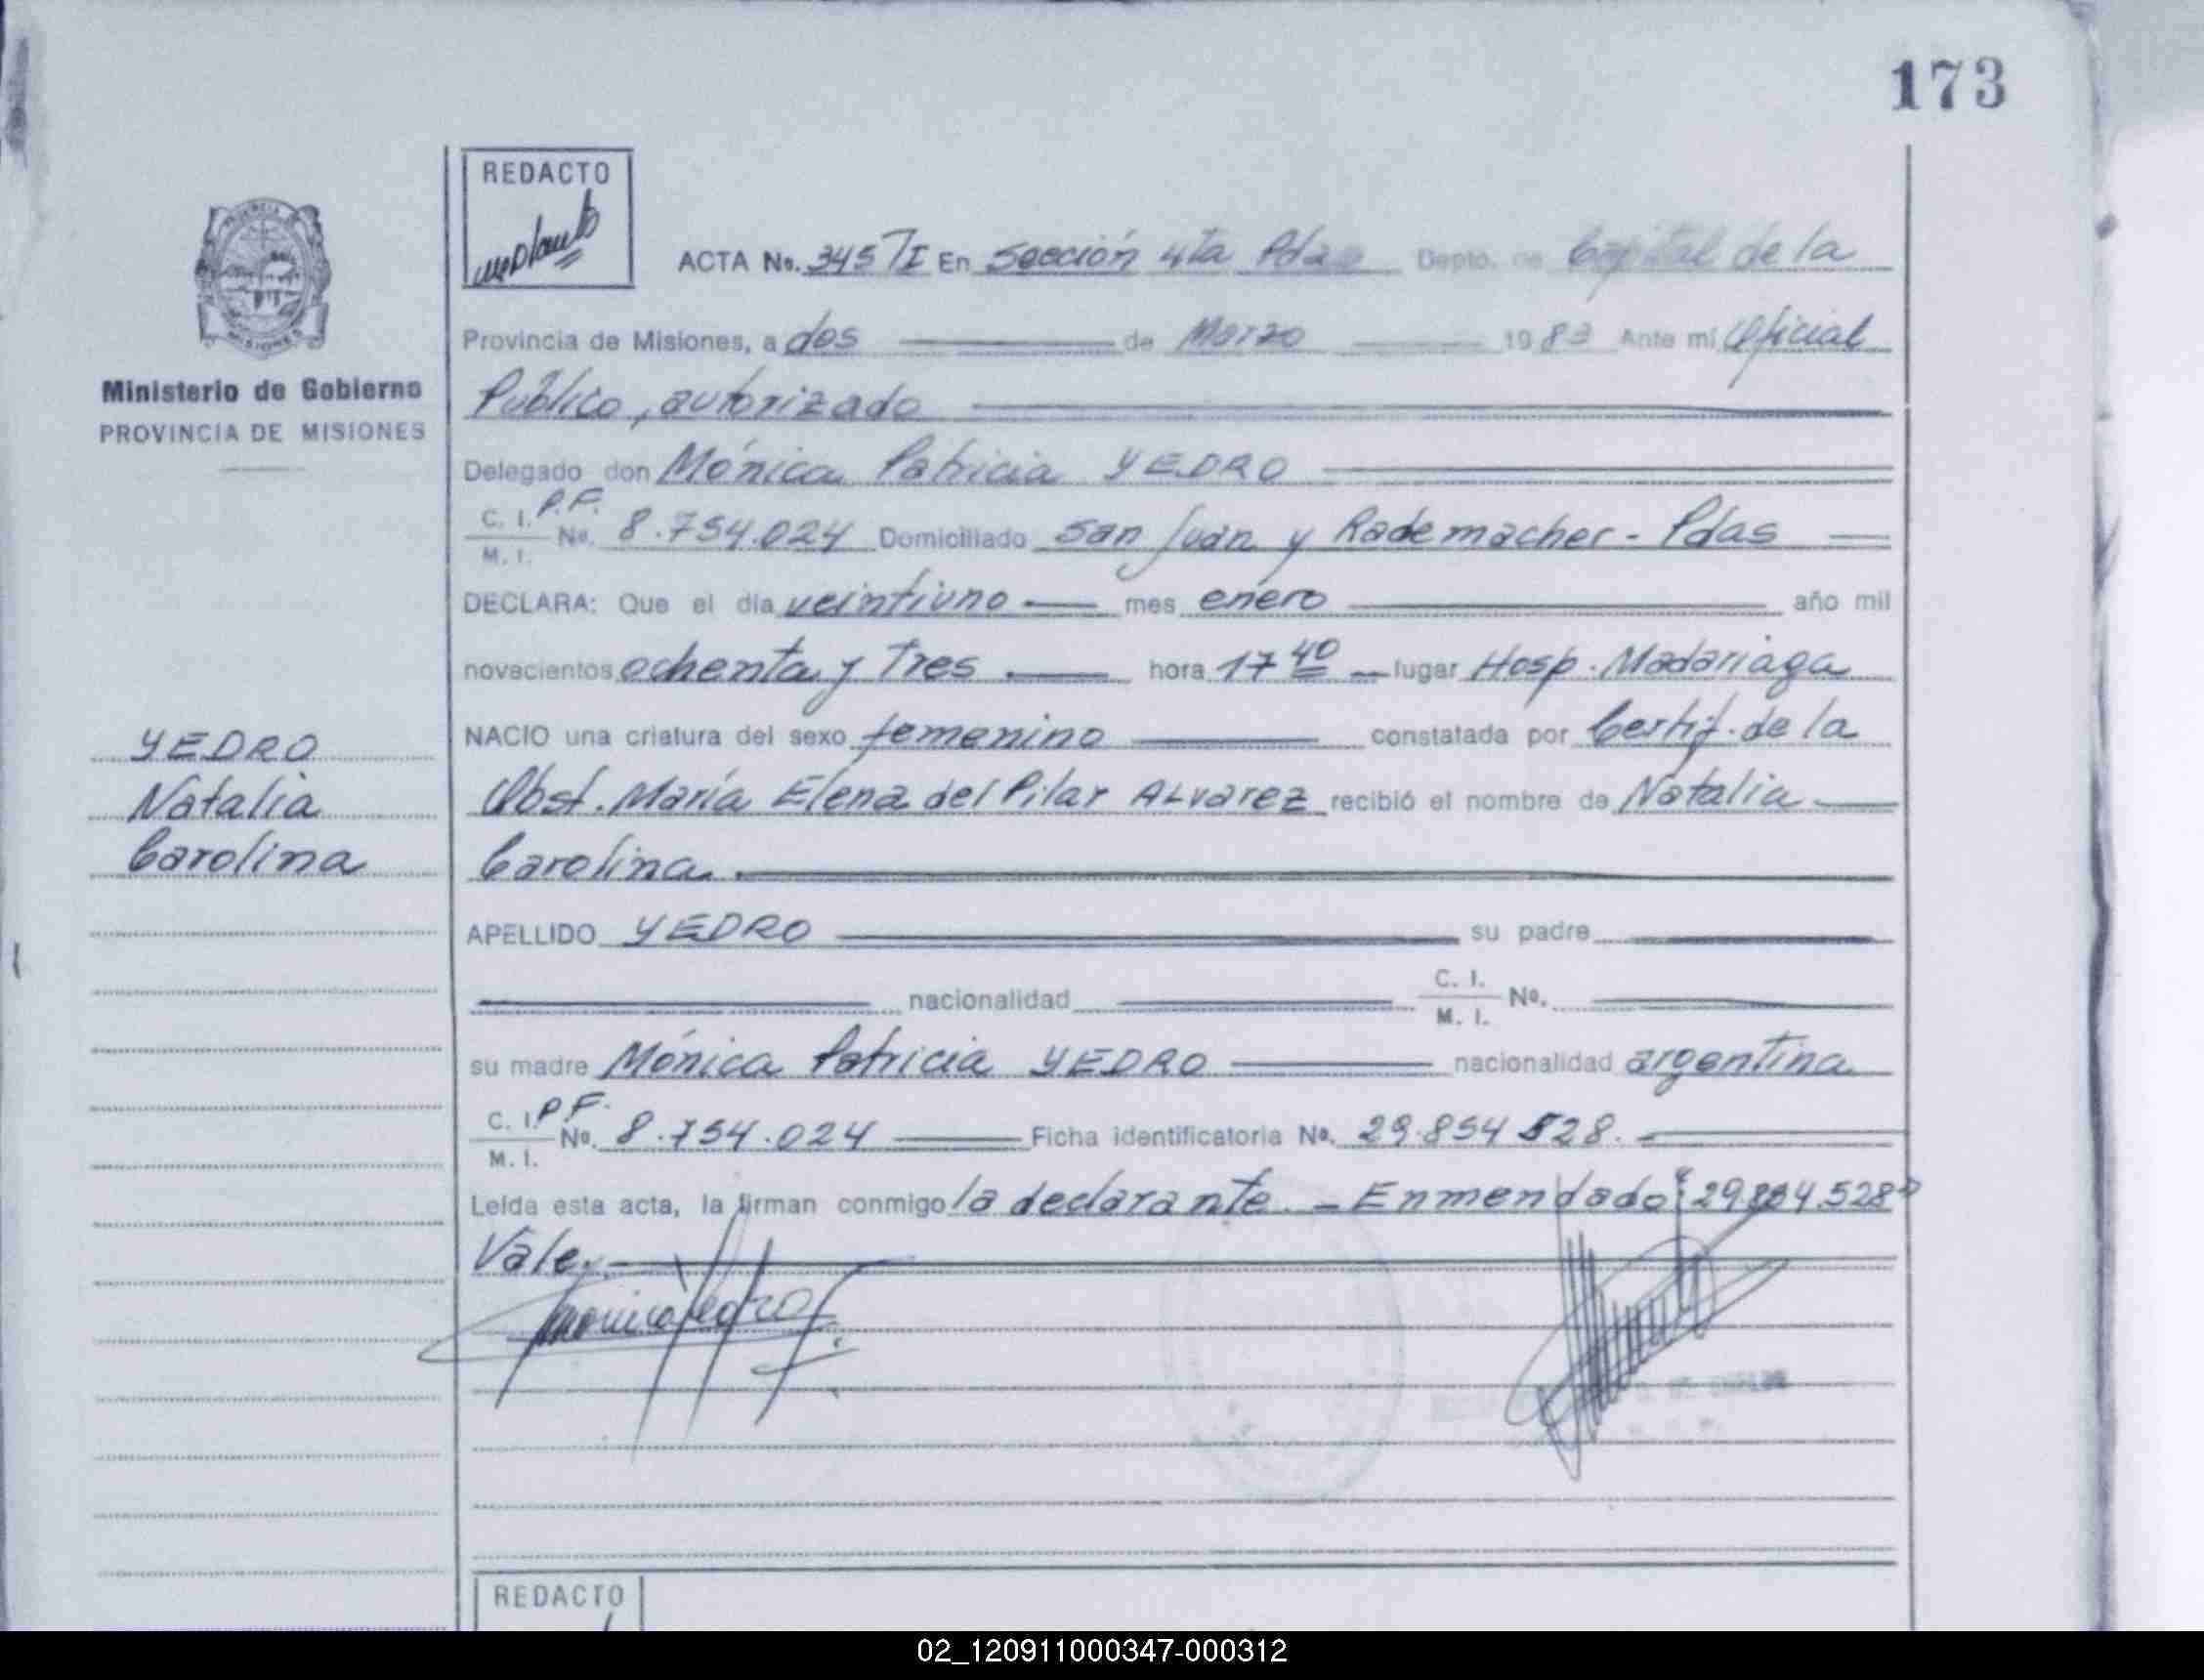 173
REDACTO
ACTA No. 345 / I En Sección 4ta Pdas Depto. de Capital de la
Provincia de Misiones, a dos de Marzo 1983 Ante mi Oficial
Público, autorizado
Delegado don Mónica Patricia YEDRO
C. I. P.F.
M. I. No. 8.754.024 Domiciliado San Juan y Rademacher - Pdas
DECLARA: Que el día veintiuno mes enero año mil
novecientos ochenta y Tres hora 17 40 lugar Hosp. Madariaga
NACIO una criatura del sexo femenino constatada por Certif. de la
Obst. María Elena del Pilar ALvarez recibió el nombre de Natalia
Carolina
APELLIDO YEDRO su padre
nacionalidad C. I. M. I. No.
su madre Mónica Patricia YEDRO nacionalidad argentina
C. I. P.F.
M. I. No. 8.754.024 Ficha identificatoria No. 29.854 528.
Leída esta acta, la firman conmigo la declarante. - Enmendado: "29.854.528"
Vale.
Ministerio de Gobierno
PROVINCIA DE MISIONES
YEDRO
Natalia
Carolina
REDACTO
02_120911000347-000312